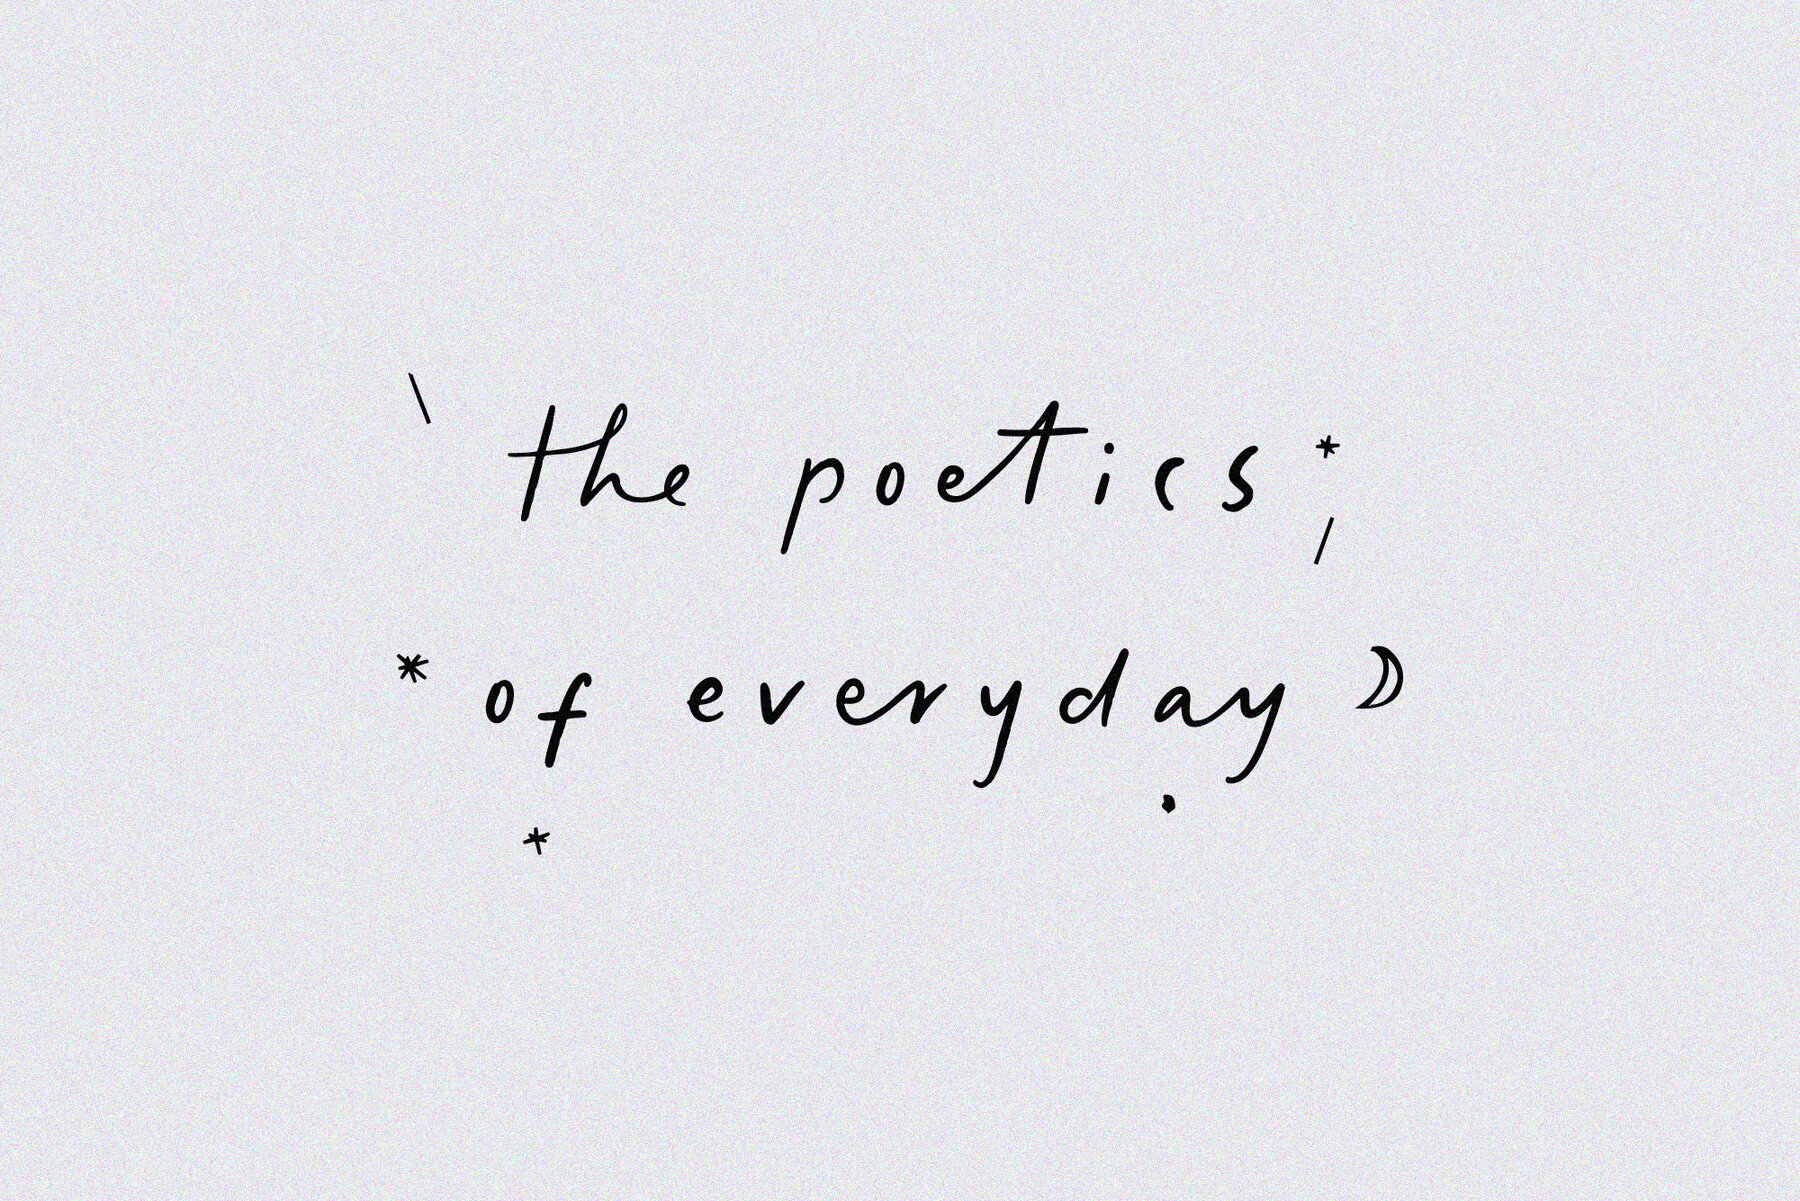 the poetics
of everyday